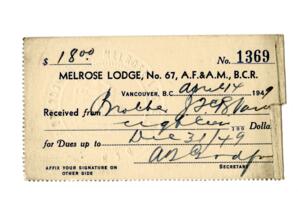 $ 18.00 No. 1369
MELROSE LODGE, No. 67, A.F.&A.M., B.C.R.
VANCOUVER, B.C. April 4 1949
Received from Brother
eighteen 100 Dolla
for Dues up to Dec 31/49
AFFIX YOUR SIGNATURE ON
OTHER SIDE
SECRETARY